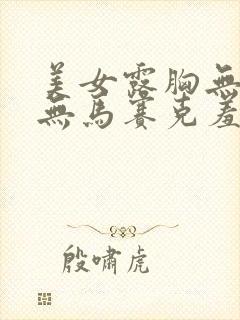 美女露胸無
無馬賽克羞
殷嘯虎